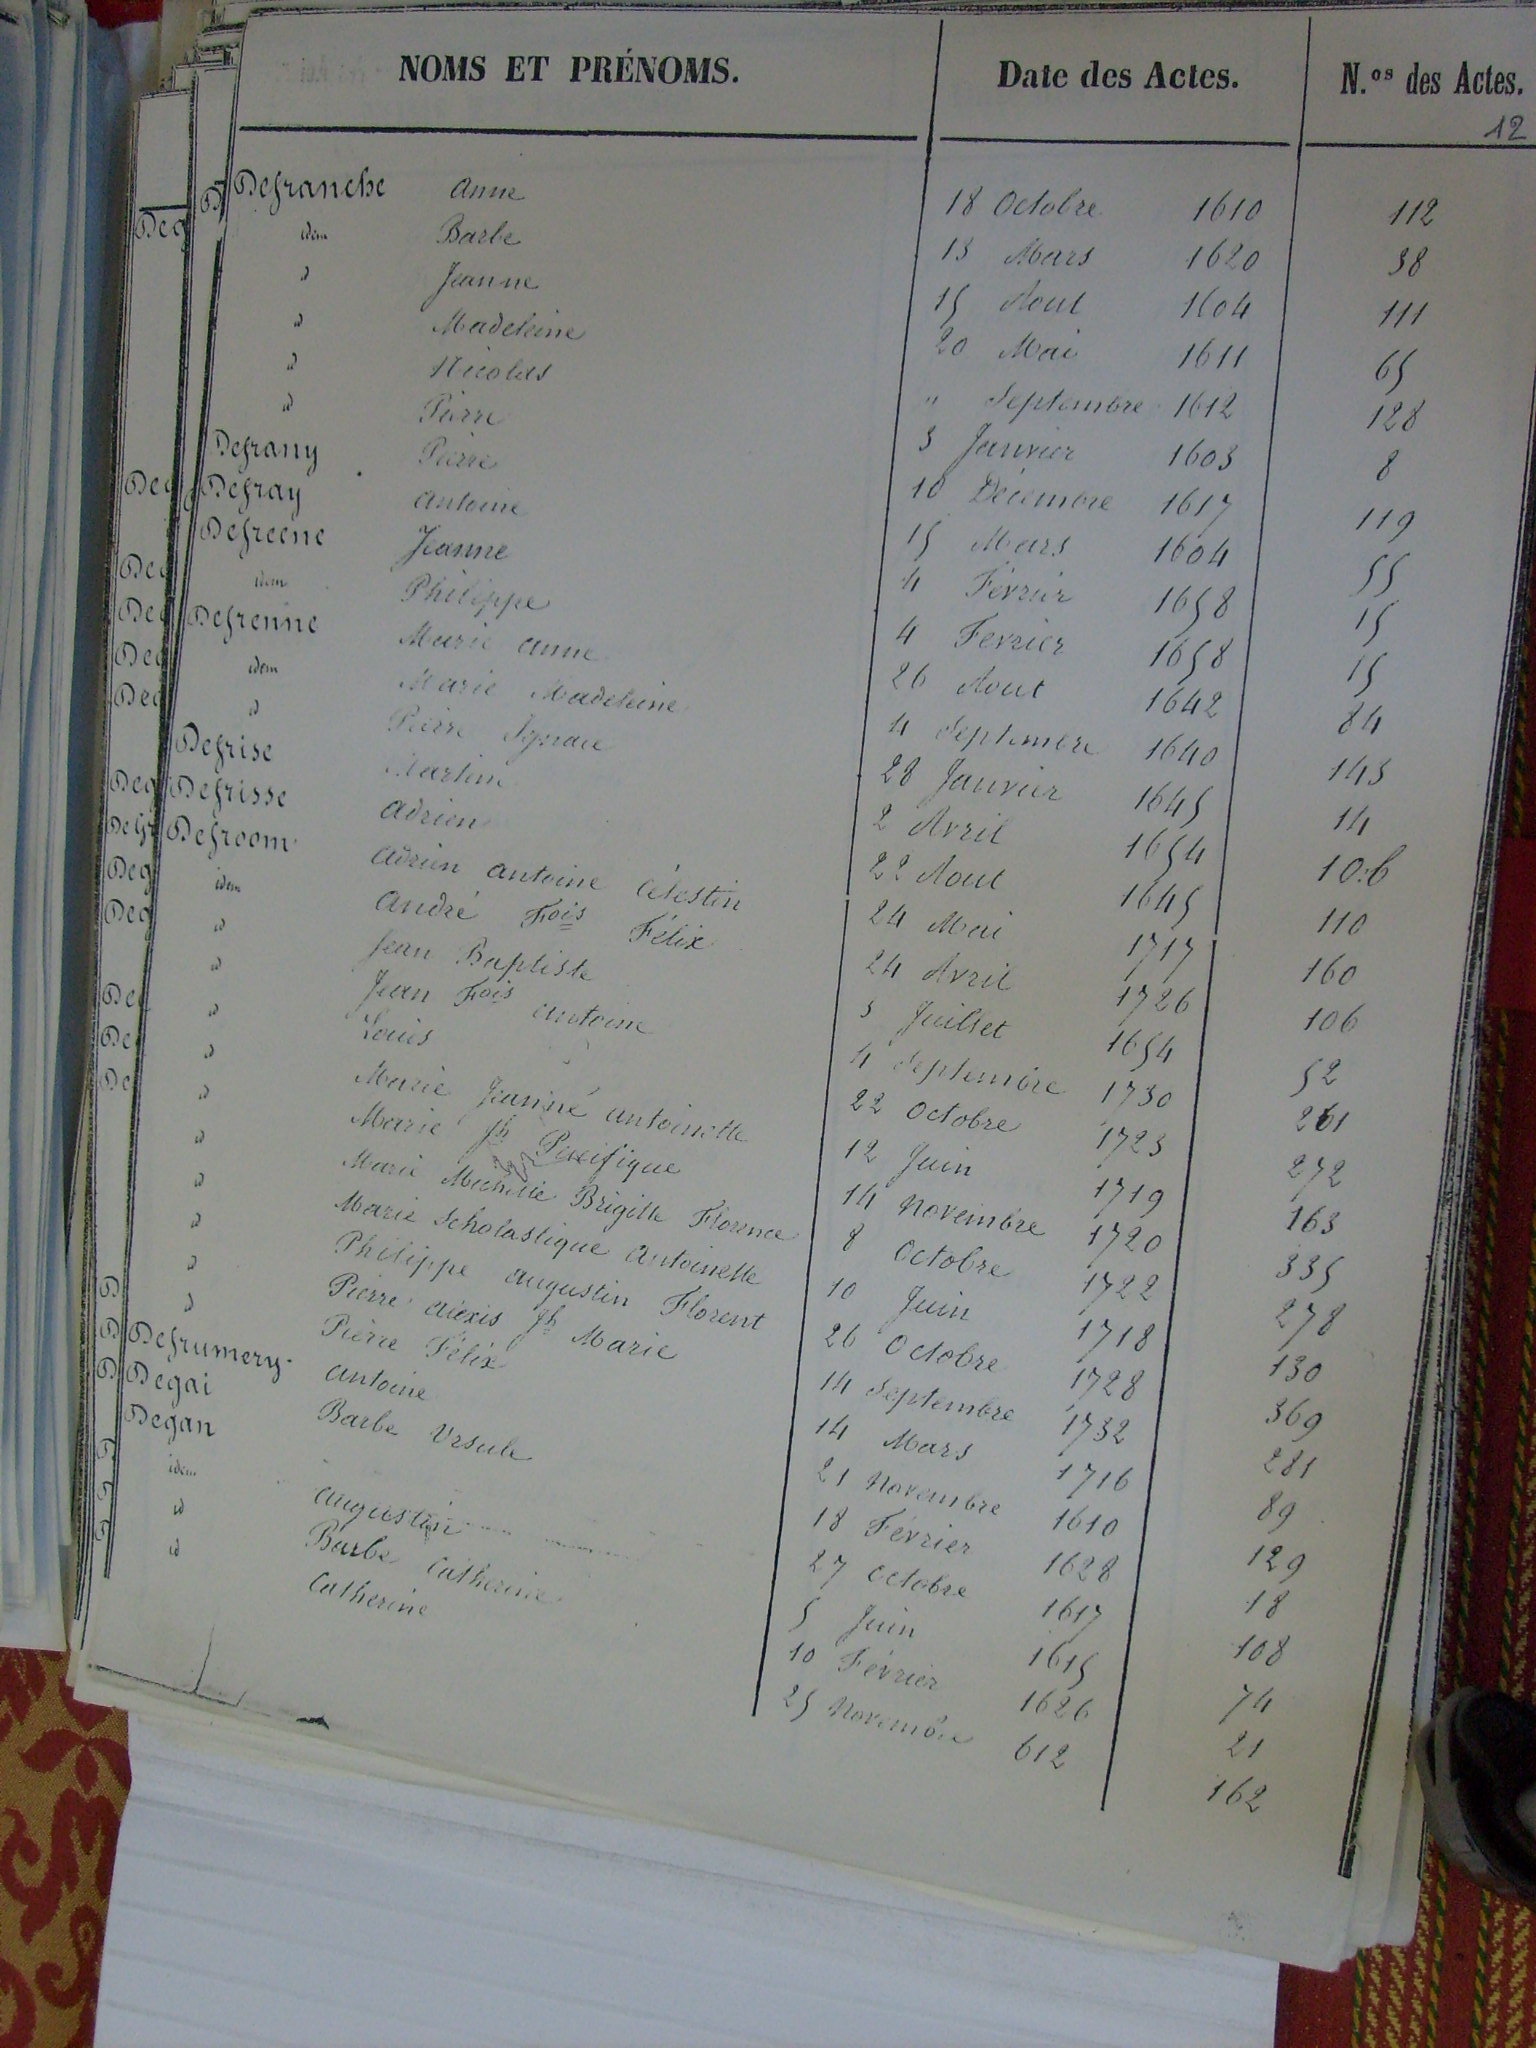 NOMS ET PRÉNOMS. Date des Actes. N.os des Actes.
12
Defranche Anne 18 Octobre 1610 112
idem Barbe 13 Mars 1620 38
id Jeanne 15 Aout 1604 111
id Madeleine 20 Mai 1611 65
id Nicolas " Septembre 1612 128
id Pierre 3 Janvier 1603 8
Defrany Pierre 10 Décembre 1617 119
Defray Antoine 15 Mars 1604 55
Defreene Jeanne 4 Février 1658 15
idem Philippe 4 Fevrier 1658 15
Defrenne Marie Anne 26 Aout 1642 84
idem Marie Madeleine 4 Septembre 1640 143
id Pierre Ignace 28 Janvier 1645 14
Defrise Martin 2 Avril 1654 106
Defrisse Adrien 22 Aout 1645 110
Defroom Adrien Antoine Célestin 24 Mai 1717 160
idem André Fois Félix 24 Avril 1726 106
id Jean Baptiste 3 Juillet 1654 52
id Jean Fois Antoine 4 Septembre 1730 261
id Louis 22 Octobre 1723 272
id Marie Jeanne Antoinette 12 Juin 1719 163
id Marie Jh Pacifique 14 Novembre 1720 335
id Marie Michelle Brigitte Florence 8 Octobre 1722 278
id Marie Scholastique Antoinette 10 Juin 1718 130
id Philippe Augustin Florent 26 Octobre 1728 369
id Pierre Alexis Jh Marie 14 Septembre 1732 281
id Pierre Félix 14 Mars 1716 89
Defrumery Antoine 21 Novembre 1610 129
Degai Barbe Ursule 18 Février 1628 18
Degan 27 Octobre 1617 108
idem Augustin 5 Juin 1615 74
id Barbe Catherine 10 Février 1626 21
id Catherine 25 Novembre 612 162